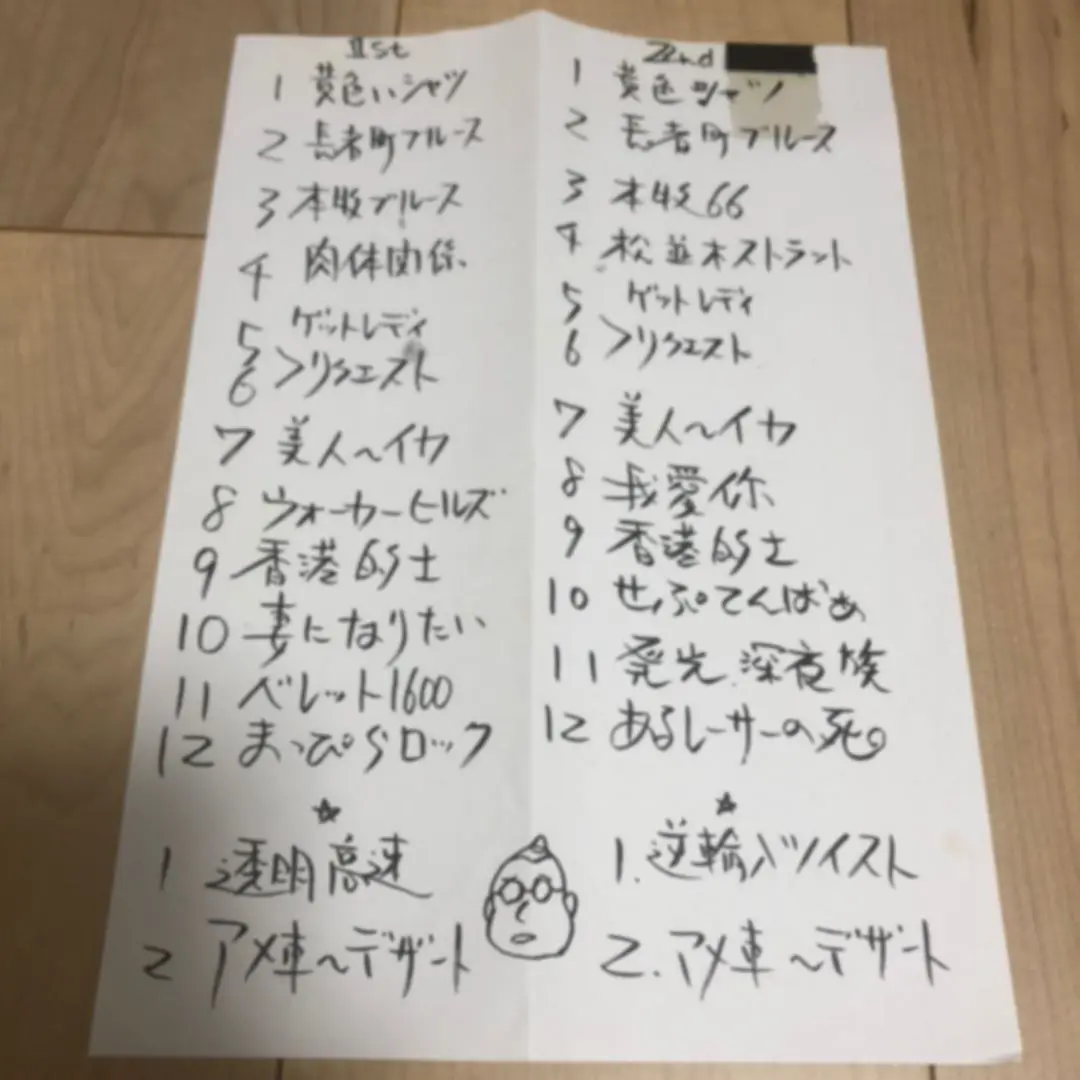 1st
1 黄色いシャツ
2 長者町ブルース
3 本牧ブルース
4 肉体関係
5 ゲットレディ
6 >リクエスト
7 美人〜イカ
8 ウォーカーヒルズ
9 香港65士
10 妻になりたい
11 ベレット1600
12 まっぴらロック
☆
1 透明高速
2 アメ車〜デザート
2nd
1 黄色シャツ
2 長者町ブルース
3 本牧66
4 松並木ストラント
5 ゲットレディ
6 >リクエスト
7 美人〜イカ
8 我愛你
9 香港65士
10 せぷてんばぁ
11 発光深夜族
12 あるレーサーの死
☆
1. 逆輪入ツイスト
2. アメ車〜デザート